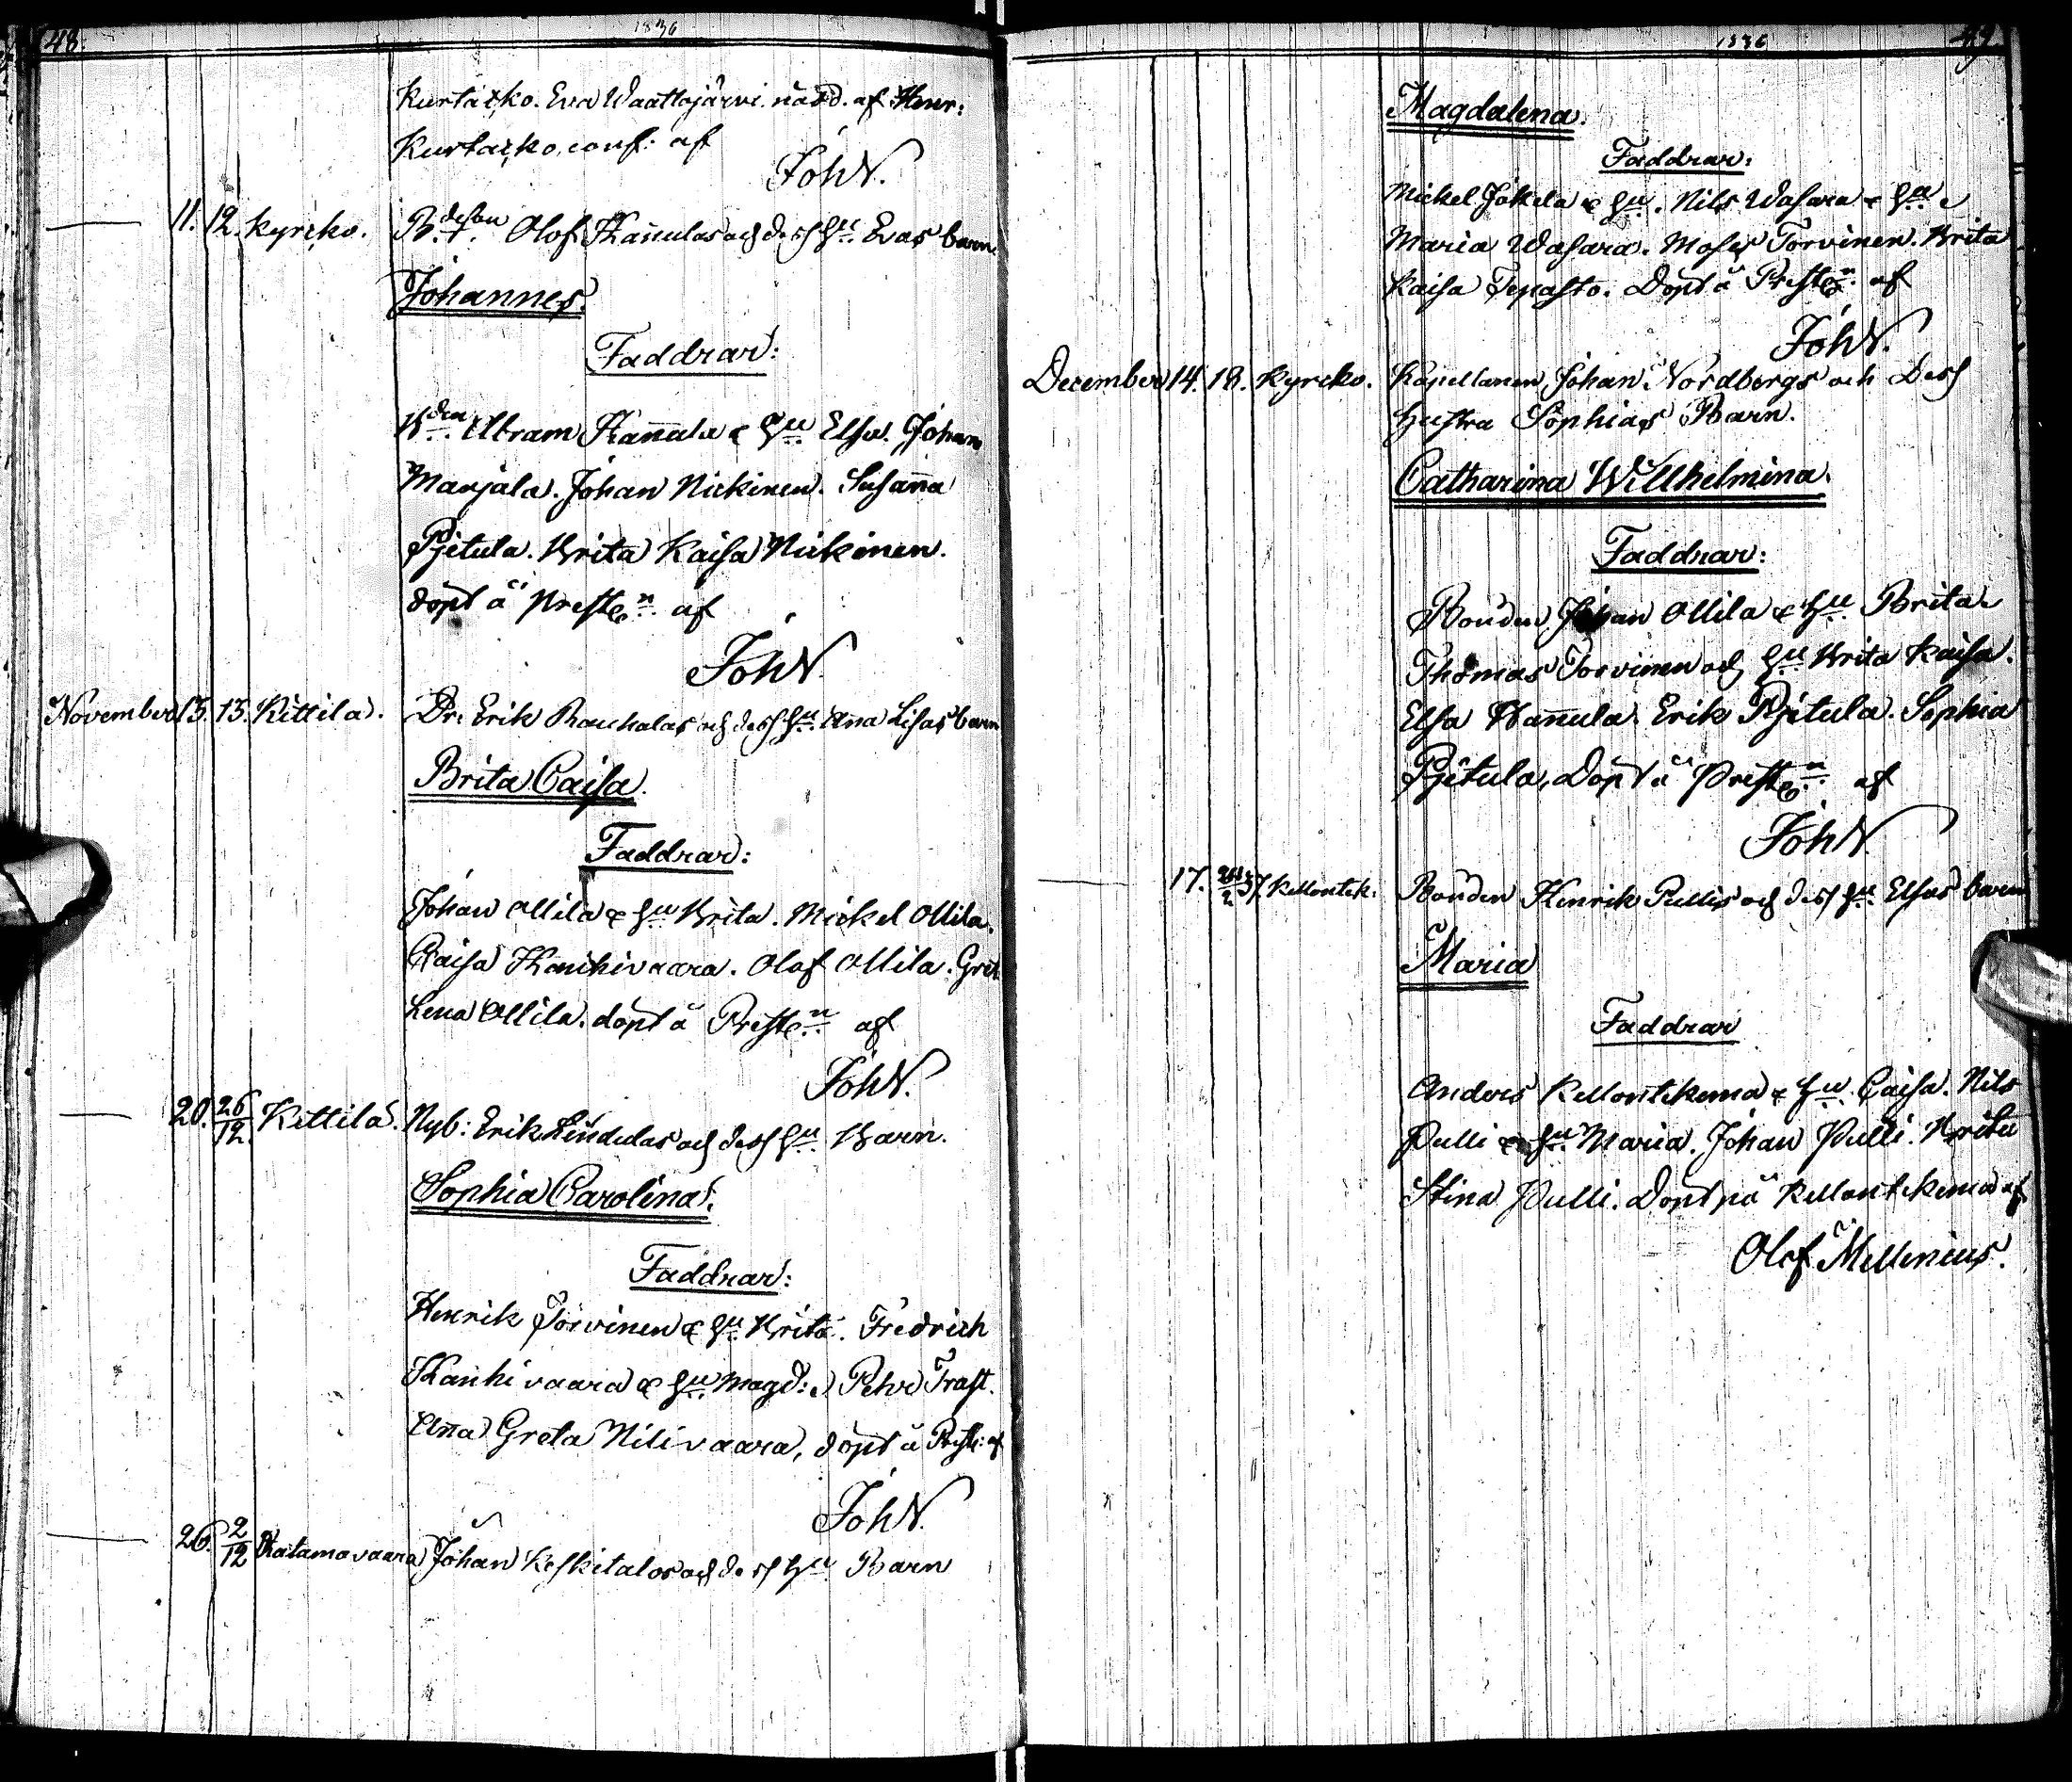 48.
1836
Kurtakko. Eva Waattojärvi. nödd. af Henr:
Kurtakko, conf: af
JohN.
11. 12. Kyrcko. B.deson Olof Hañulas och dess Hu. Evas barn
Johannes.
Faddrar:
Bden. Abram Hañula & Hu Elsa. Johan
Marjala. Johan Nickinen. Susaña
Pjetula. Brita Kaisa Nickinen.
döpt å Prestgn. af
JohN.
November 13. 13. Kittilä. Dr: Erik Rauhalas och dess Hu. Aña Lisas barn
Brita Caisa.
Faddrar:
Johan Ollila & Hu Brita. Mickel Ollila.
Caisa Kauhivaara. Olof Ollila. Gret
Lena Ollila. döpt å Prestgn. af
JohN.
20. 26/12 Kittilä. Nyb: Erik Lindelas och dess Hu. Barn.
Sophia Carolina.
Faddrar:
Henrik Torvinen & Hu. Brita. Fredrich
Kauhivaara & Hu. Magd: Petter Trast.
Aña Greta Nilivaara, döpt å Prestg: af
JohN.
26. 2/12 Ratamovaara Johan Keskitalos och dess Hu Barn
1836
49
Magdalena.
Faddrar:
Mickel Jokela & Hu. Nils Wasara & Hu
Maria Wasara. Moses Torvinen. Brita
Kaisa Tepasto. Döpt å Prestgn. af
JohN.
December 14. 18. Kyrcko. Kapellanen Johan Nordbergs och Dess
Hustru Sophias Barn.
Catharina Willhelmina.
Faddrar:
Bonden Johan Ollila & Hu. Brita
Thomas Torvinen och Hu Brita Kaisa.
Elsa Hañula. Erik Pjetula. Sophia
Pjetula, Döpt å Prestgn. af
JohN.
17. Kellontek: Bonden Henrik Pullis och dess Hu. Elsas barn
Maria
Faddrar
Anders Kellontekema & Hu. Caisa. Nils
Pulli & Hu. Maria. Johan Pulli. Brita
Stina Pulli. Döpt på Kellontekema af
Olof Mellenius.